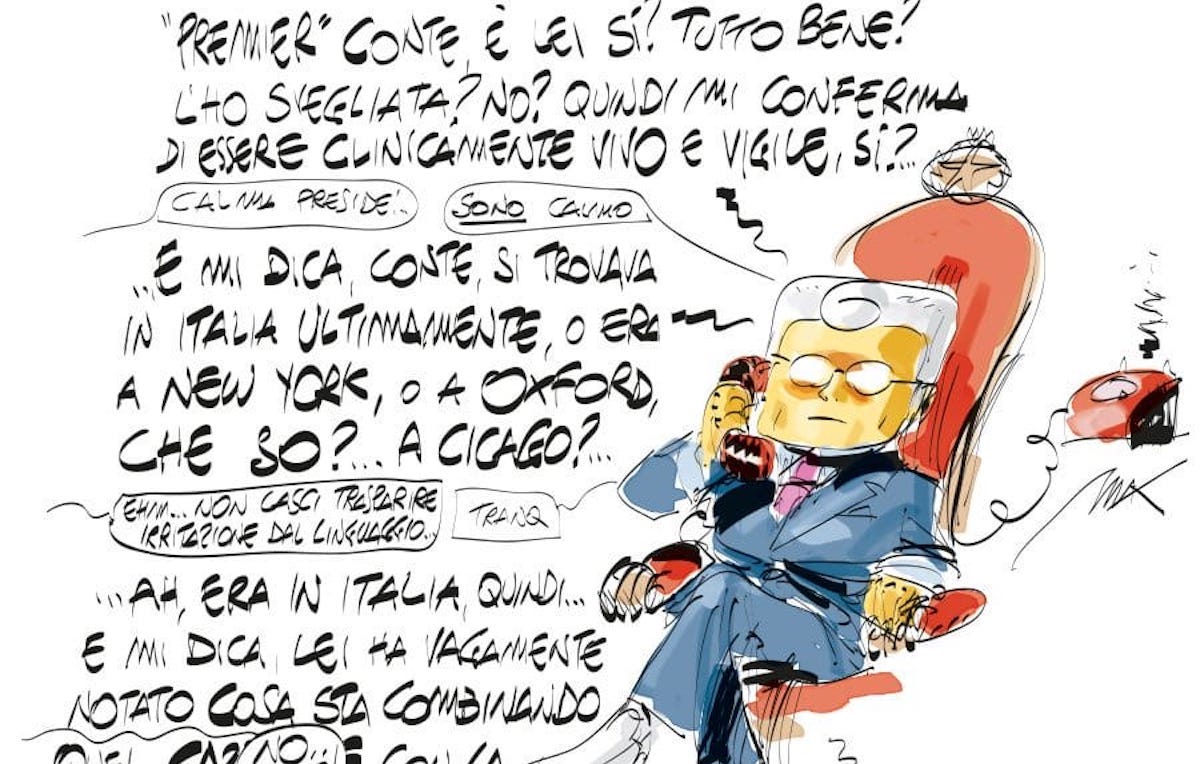 "PREMIER" CONTE, È LEI SÌ? TUTTO BENE?
L'HO SVEGLIATA? NO? QUINDI MI CONFERMA
DI ESSERE CLINICAMENTE VIVO E VIGILE, SÌ?...
CALMA PRESIDE'...
SONO CALMO
...E MI DICA, CONTE, SI TROVAVA
IN ITALIA ULTIMAMENTE, O ERA
A NEW YORK, O A OXFORD,
CHE SO?... A CICAGO?...
EHM... NON LASCI TRASPARIRE
IRRITAZIONE DAL LINGUAGGIO...
TRANQ
...AH, ERA IN ITALIA, QUINDI...
E MI DICA, LEI HA VAGAMENTE
NOTATO COSA STA COMBINANDO
QUEL NO... E CON LA